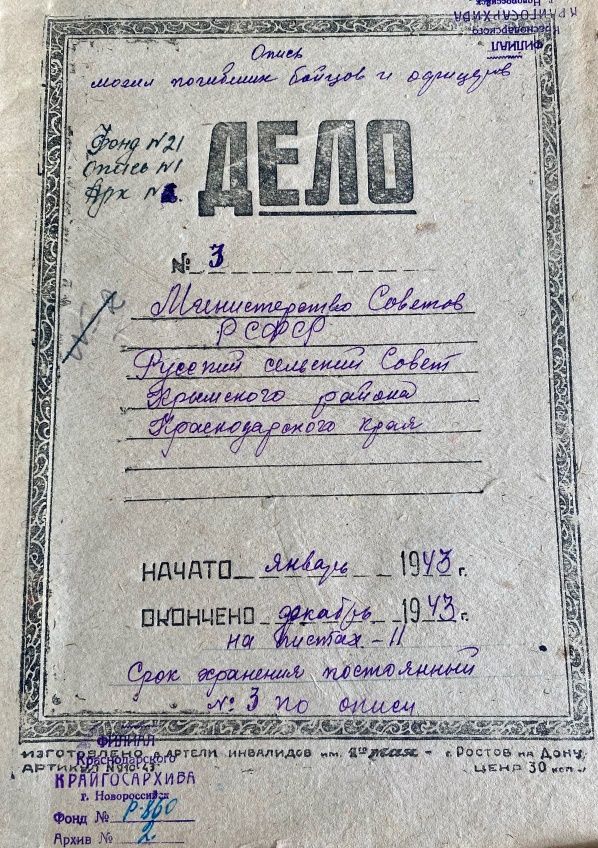 Краснодарского
КРАЙГОСАРХИВА
г. Новороссийск
ФИЛИАЛ
Опись
могил погибших бойцов и офицеров
Фонд №21
Опись №1
Арх №
ДЕЛО
№ 3
Министерство Советов
РСФСР
Русский сельский Совет
Крымского района
Краснодарского края
НАЧАТО январь 1943 г.
ОКОНЧЕНО декабрь 1943 г.
на листах - 11
Срок хранения постоянный
№ 3 по описи
ИЗГОТОВЛЕНО в АРТЕЛИ ИНВАЛИДОВ им. мая - г. РОСТОВ НА ДОНУ
АРТИКУЛ ЦЕНА 30 коп.
ФИЛИАЛ
Краснодарского
КРАЙГОСАРХИВА
г. Новороссийск
Фонд № Р-860
Архив № 2